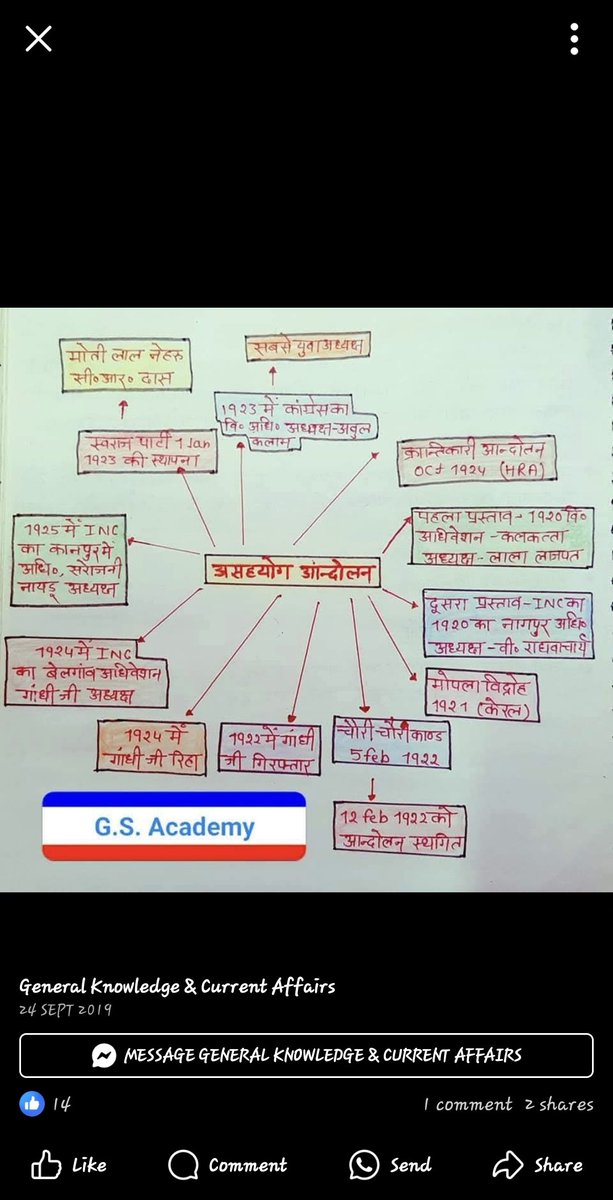 मोती लाल नेहरु
सी॰ आर॰ दास
सबसे युवा अध्यक्ष
1923 में कांग्रेस का
वि॰ अधि॰ अध्यक्ष-अबुल
कलाम
स्वराज पार्टी 1 Jan
1923 की स्थापना
क्रान्तिकारी आन्दोलन
Oct 1924 (HRA)
1925 में INC
का कानपुर में
अधि॰, सरोजनी
नायडू अध्यक्ष
असहयोग आंन्दोलन
पहला प्रस्ताव- 1920 वि॰
अधिवेशन - कलकत्ता
अध्यक्ष- लाला लाजपत
दूसरा प्रस्ताव-INC का
1920 का नागपुर अधि॰
अध्यक्ष - वी॰ राघवाचार्य
1924 में INC
का बेलगांव अधिवेशन
गांधी जी अध्यक्ष
मोपला विद्रोह
1921 (केरल)
1924 में
गांधी जी रिहा
1922 में गांधी
जी गिरफ्तार
चौरी चौरा काण्ड
5 feb 1922
12 feb 1922 को
आन्दोलन स्थगित
G.S. Academy
General Knowledge & Current Affairs
24 SEPT 2019
MESSAGE GENERAL KNOWLEDGE & CURRENT AFFAIRS
14
1 comment 2 shares
Like Comment Send Share